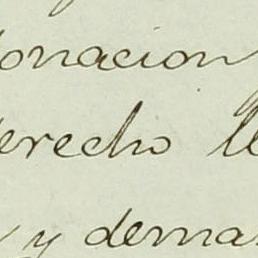 donacion
derecho
y demas